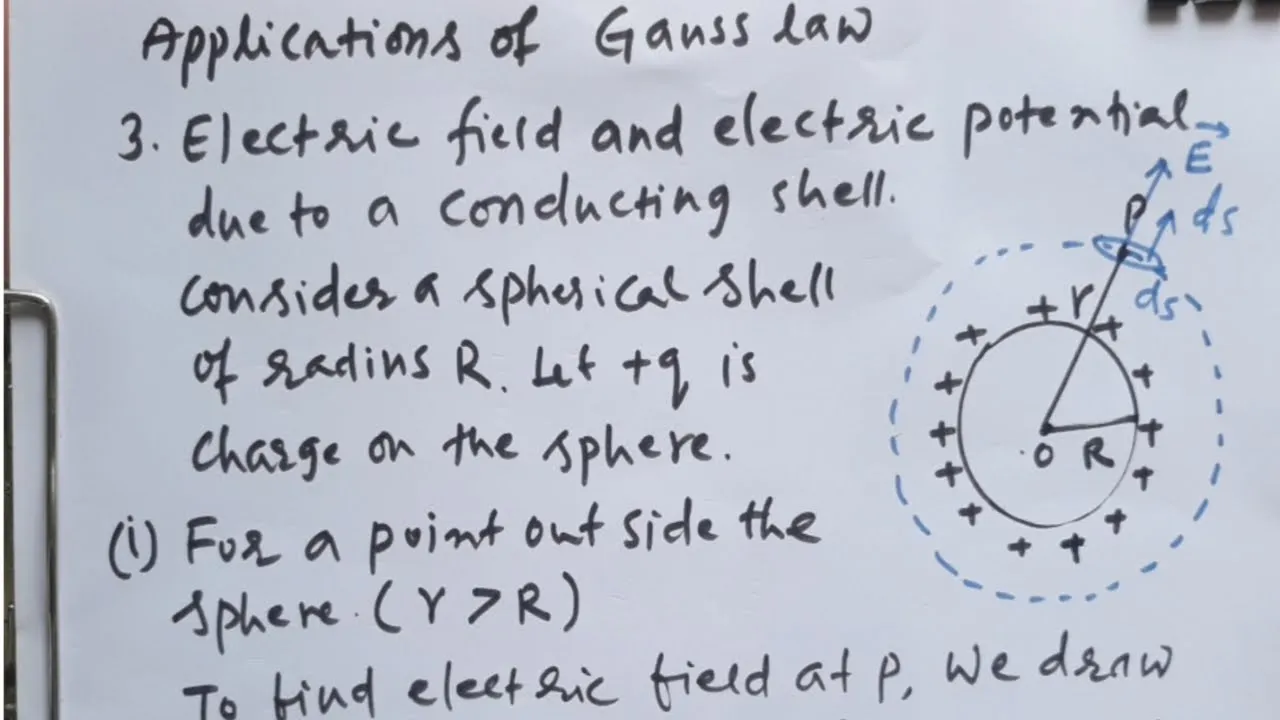 Applications of Gauss law
3. Electric field and electric potential
due to a conducting shell.
consider a spherical shell
of radius R. Let +q is
charge on the sphere.
(i) For a point out side the
sphere. (r > R)
To find electric field at P, we draw
E
P
ds
ds
r
O R